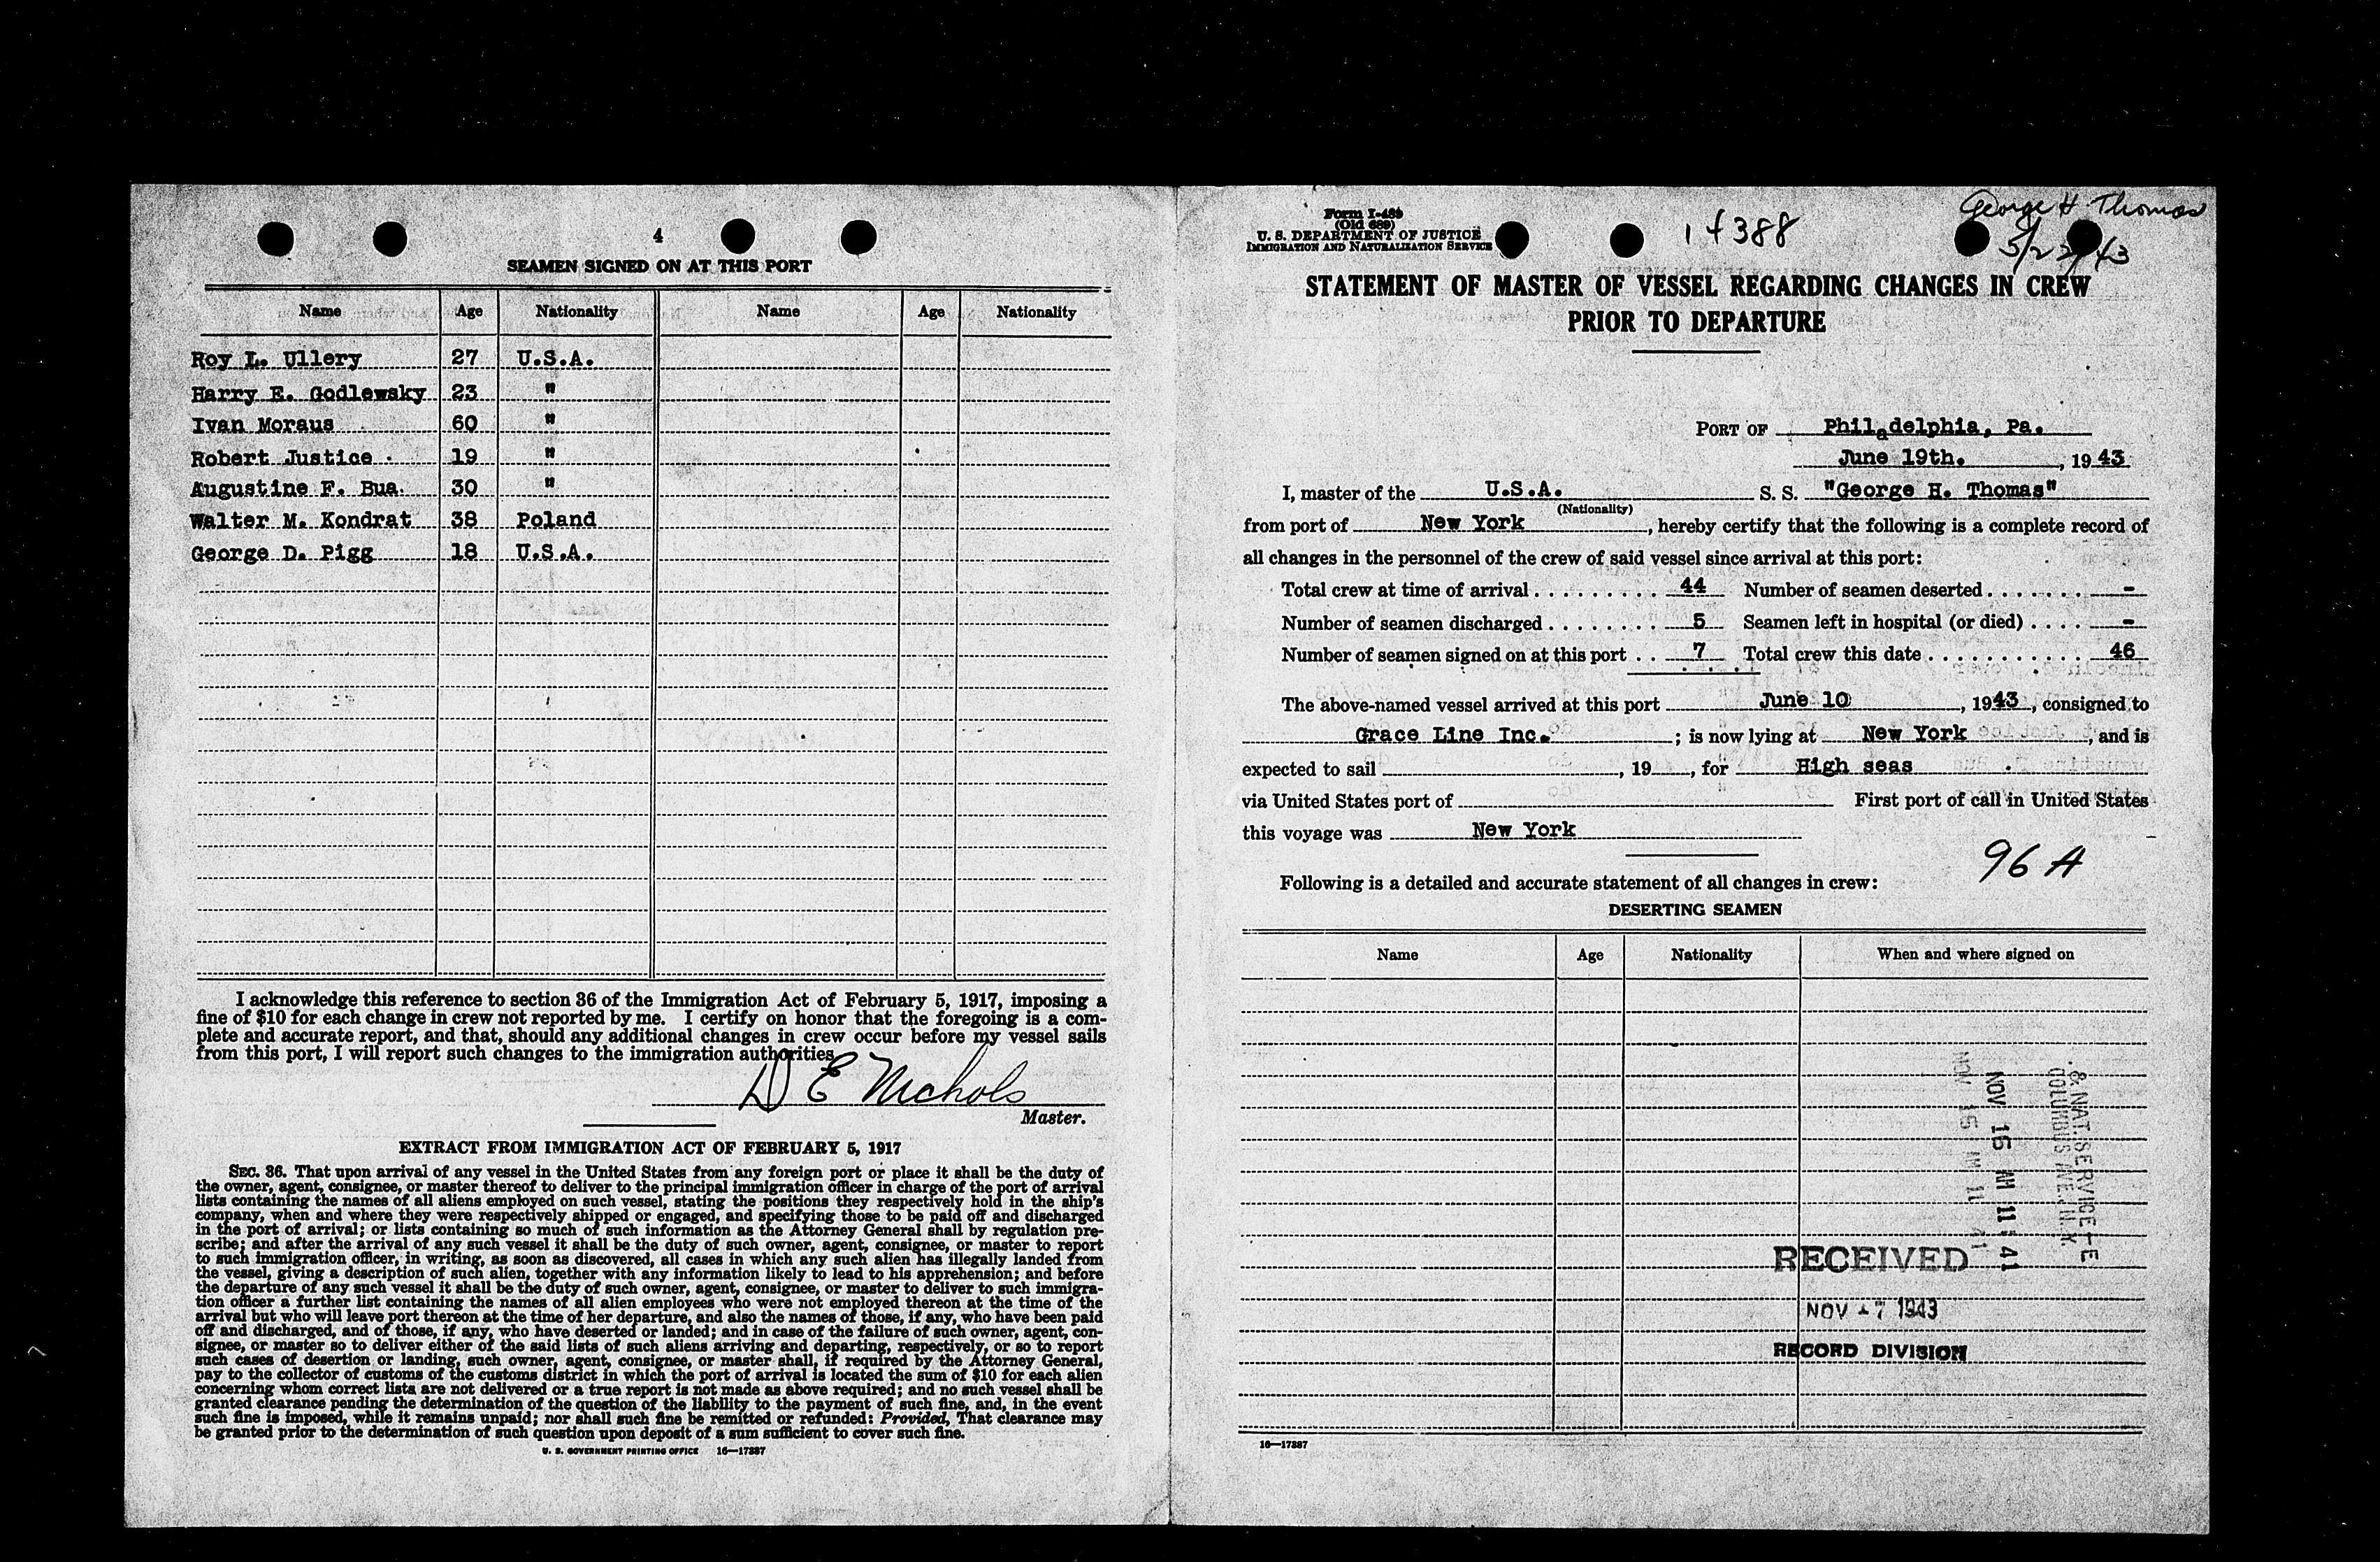 4
SEAMEN SIGNED ON AT THIS PORT
Name Age Nationality Name Age Nationality
Roy L. Ullery 27 U.S.A.
Harry E. Godlewsky 23 "
Ivan Moraus 60 "
Robert Justice 19 "
Augustine F. Bua 30 "
Walter M. Kondrat 38 Poland
George D. Pigg 18 U.S.A.
I acknowledge this reference to section 36 of the Immigration Act of February 5, 1917, imposing a
fine of $10 for each change in crew not reported by me. I certify on honor that the foregoing is a com-
plete and accurate report, and that, should any additional changes in crew occur before my vessel sails
from this port, I will report such changes to the immigration authorities.
D E Nichols
Master.
EXTRACT FROM IMMIGRATION ACT OF FEBRUARY 5, 1917
SEC. 36. That upon arrival of any vessel in the United States from any foreign port or place it shall be the duty of
the owner, agent, consignee, or master thereof to deliver to the principal immigration officer in charge of the port of arrival
lists containing the names of all aliens employed on such vessel, stating the positions they respectively hold in the ship's
company, when and where they were respectively shipped or engaged, and specifying those to be paid off and discharged
in the port of arrival; or lists containing so much of such information as the Attorney General shall by regulation pre-
scribe; and after the arrival of any such vessel it shall be the duty of such owner, agent, consignee, or master to report
to such immigration officer, in writing, as soon as discovered, all cases in which any such alien has illegally landed from
the vessel, giving a description of such alien, together with any information likely to lead to his apprehension; and before
the departure of any such vessel it shall be the duty of such owner, agent, consignee, or master to deliver to such immigra-
tion officer a further list containing the names of all alien employees who were not employed thereon at the time of the
arrival but who will leave port thereon at the time of her departure, and also the names of those, if any, who have been paid
off and discharged, and of those, if any, who have deserted or landed; and in case of the failure of such owner, agent, con-
signee, or master so to deliver either of the said lists of such aliens arriving and departing, respectively, or so to report
such cases of desertion or landing, such owner, agent, consignee, or master shall, if required by the Attorney General,
pay to the collector of customs of the customs district in which the port of arrival is located the sum of $10 for each alien
concerning whom correct lists are not delivered or a true report is not made as above required; and no such vessel shall be
granted clearance pending the determination of the question of the liability to the payment of such fine, and, in the event
such fine is imposed, while it remains unpaid; nor shall such fine be remitted or refunded: Provided, That clearance may
be granted prior to the determination of such question upon deposit of a sum sufficient to cover such fine.
U. S. GOVERNMENT PRINTING OFFICE 16—17387
Form I-489
(Old 689)
U. S. DEPARTMENT OF JUSTICE
IMMIGRATION AND NATURALIZATION SERVICE
14388
George H Thomas
5/22/43
STATEMENT OF MASTER OF VESSEL REGARDING CHANGES IN CREW
PRIOR TO DEPARTURE
PORT OF Philadelphia, Pa.
June 19th. , 1943
I, master of the U.S.A. S. S. "George H. Thomas"
(Nationality)
from port of New York , hereby certify that the following is a complete record of
all changes in the personnel of the crew of said vessel since arrival at this port:
Total crew at time of arrival . . . . . . . . . 44 Number of seamen deserted . . . . . . . -
Number of seamen discharged . . . . . . . . 5 Seamen left in hospital (or died) . . . . -
Number of seamen signed on at this port . . 7 Total crew this date . . . . . . . . . . . . 46
The above-named vessel arrived at this port June 10 , 1943 , consigned to
Grace Line Inc. ; is now lying at New York , and is
expected to sail , 19 , for High seas
via United States port of First port of call in United States
this voyage was New York
96 A
Following is a detailed and accurate statement of all changes in crew:
DESERTING SEAMEN
Name Age Nationality When and where signed on
& NAT. SERVICE
COLUMBUS AVE. N.Y.
NOV 16 AM 11 41
NOV 16 11 41
RECEIVED
NOV -7 1943
RECORD DIVISION
16—17387